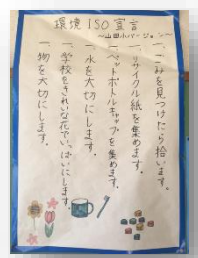 環境ISO宣言
〜山田小バージョン〜
一、ごみを見つけたら拾います。
一、リサイクル紙を集めます。
一、ペットボトルキャップを集めます。
一、水を大切にします。
一、学校をきれいな花でいっぱいにします。
一、物を大切にします。